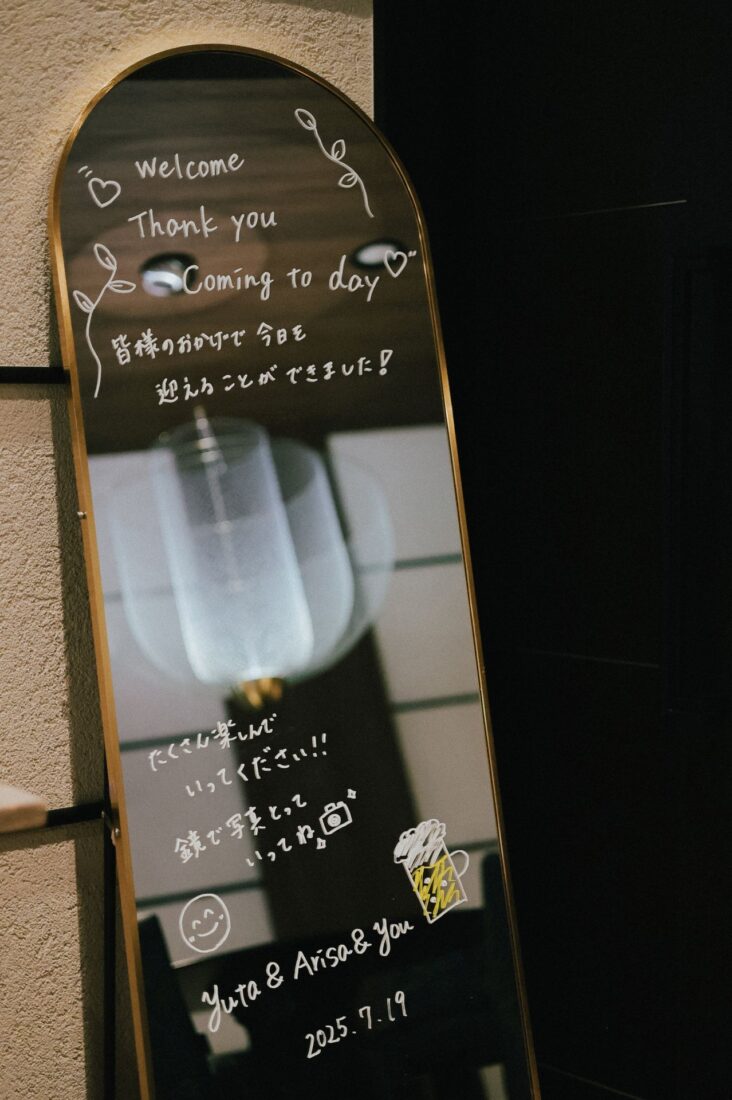 Welcome
Thank you
Coming to day
皆様のおかげで今日を
迎えることができました!
たくさん楽しんで
いってください!!
鏡で写真とって
いってね
Yuta & Arisa & You
2025.7.19